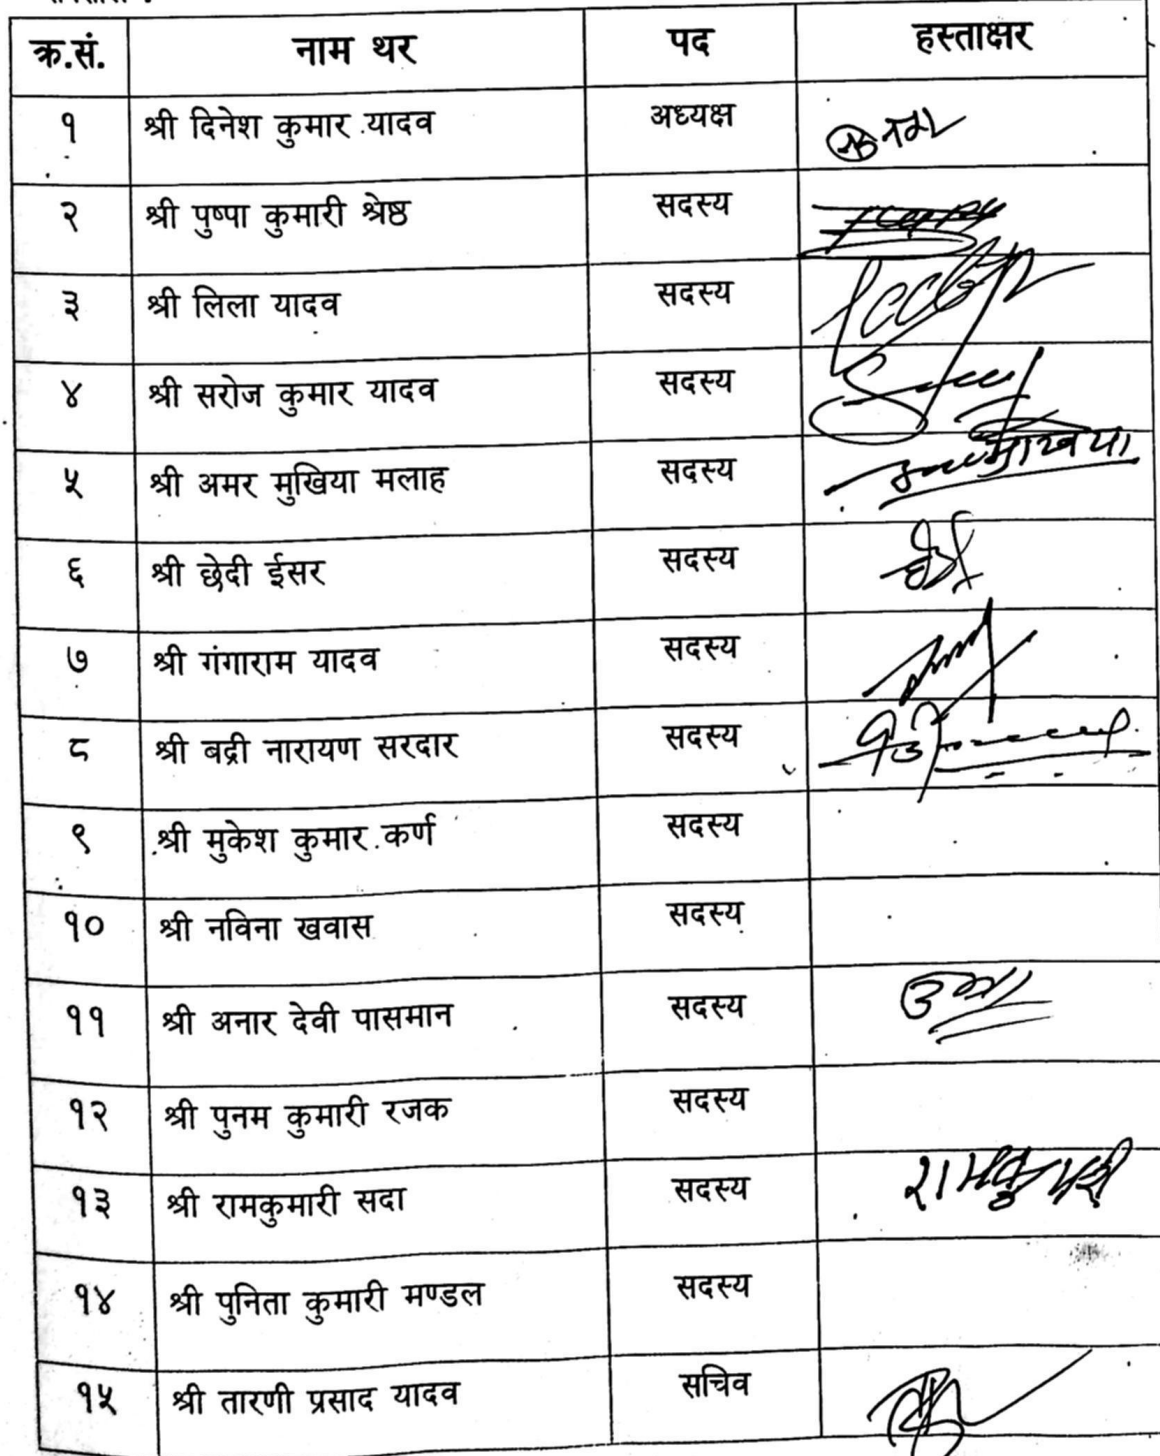 क्र.सं. नाम थर पद हस्ताक्षर
१ श्री दिनेश कुमार यादव अध्यक्ष
२ श्री पुष्पा कुमारी श्रेष्ठ सदस्य
३ श्री लिला यादव सदस्य
४ श्री सरोज कुमार यादव सदस्य
५ श्री अमर मुखिया मलाह सदस्य मुखिया
६ श्री छेदी ईसर सदस्य
७ श्री गंगाराम यादव सदस्य
८ श्री बद्री नारायण सरदार सदस्य
९ श्री मुकेश कुमार कर्ण सदस्य
१० श्री नविना खवास सदस्य
११ श्री अनार देवी पासमान सदस्य
१२ श्री पुनम कुमारी रजक सदस्य
१३ श्री रामकुमारी सदा सदस्य रामकुमारी
१४ श्री पुनिता कुमारी मण्डल सदस्य
१५ श्री तारणी प्रसाद यादव सचिव